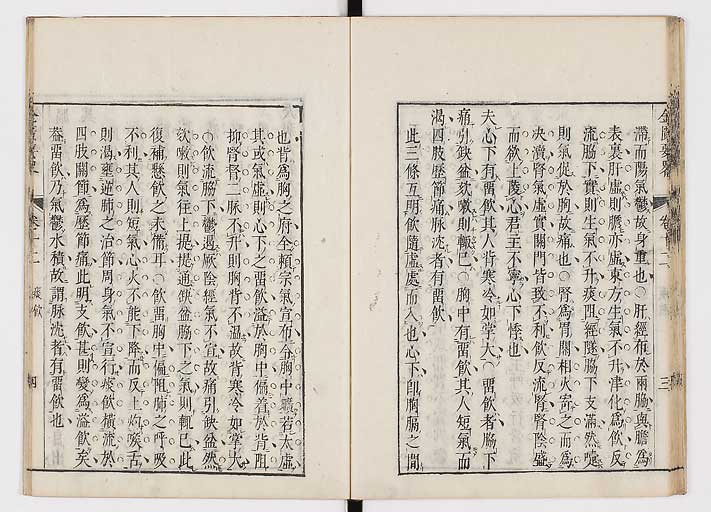 滯而陽氣鬱故身重也○肝經布於兩脇與膽爲
表裏肝虛則膽亦虛東方生氣不升津化爲飮反
流脇下實則生氣不升痰阻經隧脇下支滿然嚏
則氣促於胸故痛也○腎爲胃關相火寄之而爲
決瀆腎氣虛實關門皆致不利飮反流腎腎陰盛
而欲上凌心君主不寧心下悸也
夫心下有畱飮其人背寒冷如掌大○畱飮者脇下
痛引缺盆欬嗽則輒已○胸中有畱飮其人短氣而
渴四肢歷節痛脉沈者有畱飮
此三條互明飮隨虛處而入也心下卽胸膈之間
金匱要略
卷十二
痰飮
三
也背爲胸之府全賴宗氣宣布令胸中曠若太虛
其或氣虛則心下之畱飮溢於胸中偏着於背阻
抑腎督二脉不升則胸背不溫故背寒冷如掌大
○飮流脇下鬱遏厥陰經氣不宣故痛引缺盆然
欬嗽則氣往上提提通缺盆脇下之氣則輒已此
復補懸飮之未備耳○飮畱胸中偏阻肺之呼吸
不利其人則短氣心火不能下降而反上灼喉舌
則渴壅遏肺之治節周身氣不宣行痰飮橫流於
四肢關節爲歷節痛此明支飮甚則變爲溢飮矣
葢畱飮乃氣鬱水積故謂脉沈者有畱飮也
金匱要略
卷十二
痰飮
四